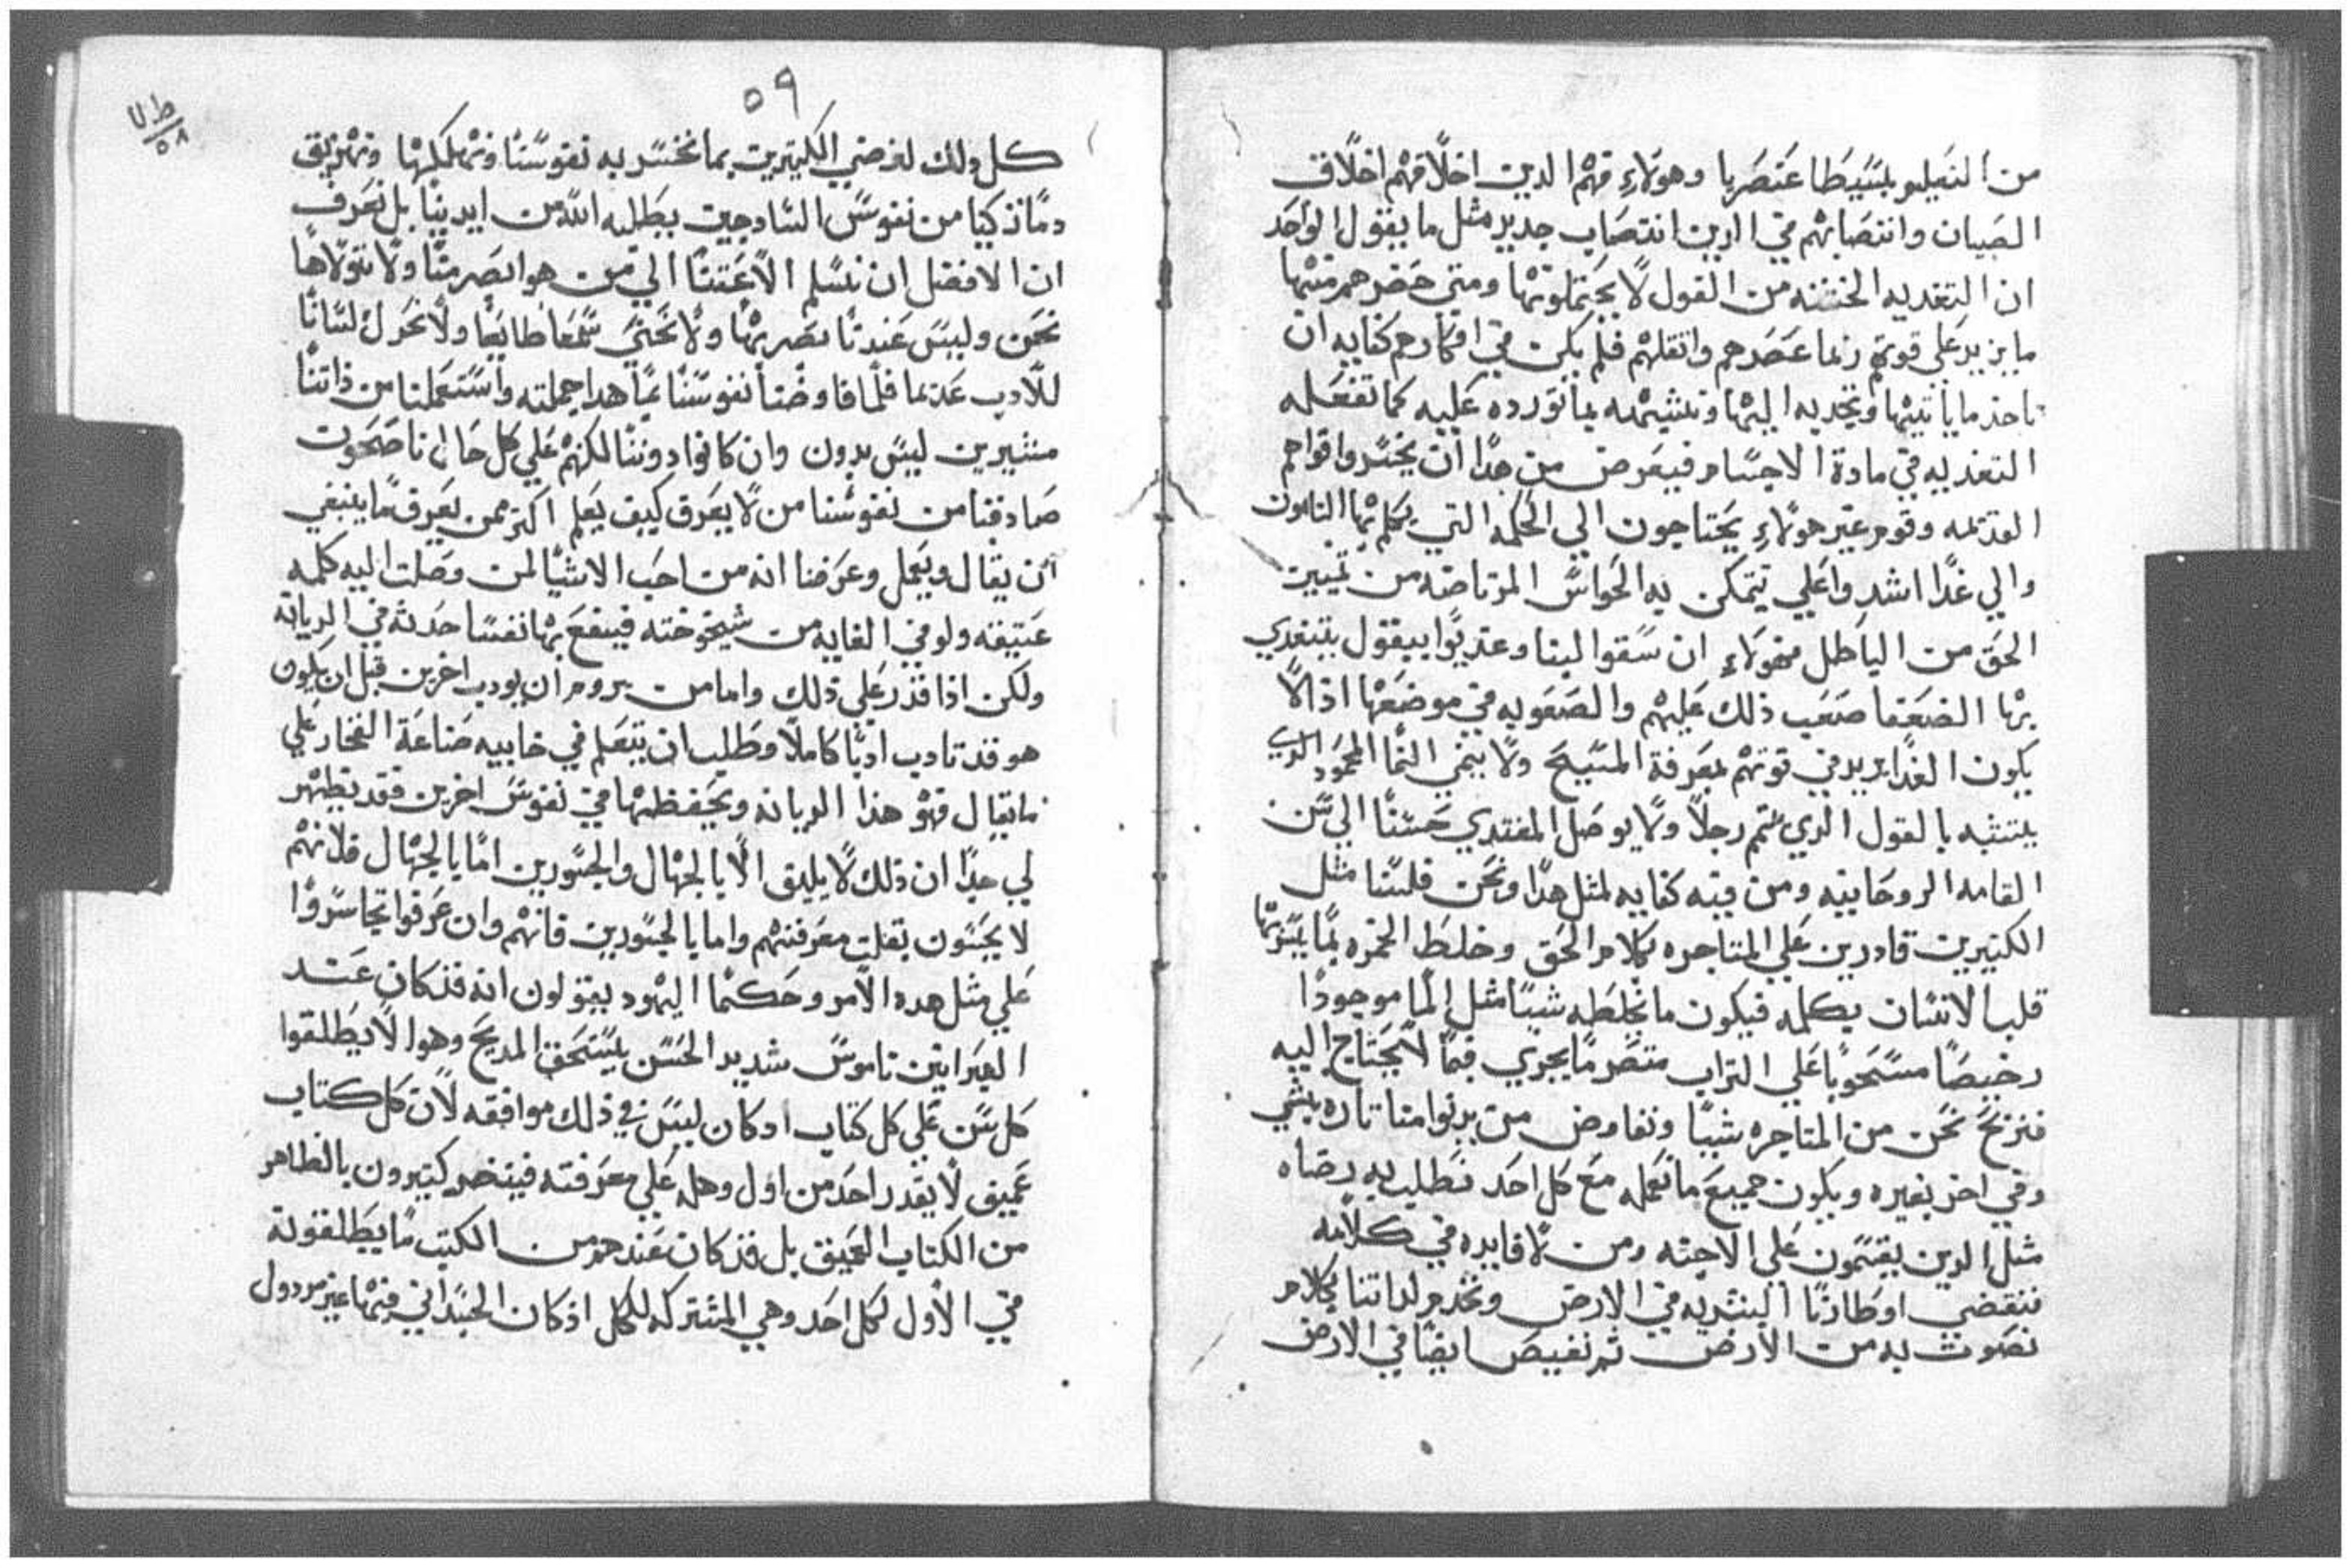 من التعليم بسيطا عنصريا وهولاءِ فهم الدين اخلاقهم اخلاق
الصبيان وانتصابهم في الدين انتصاب جديد مثل ما يقول الواحد
ان التغديه الخشنه من القول لا يحتملونها ومتي حضرهم منها
ما يزيد علي قوتهم ربما عصرهم واثقلهم فلم يكن في افكارهم كفايه ان
تاخذ ما ياتيها وتجديه اليها وتنشيهه بما تورده عليه كما تفعله
التغديه في مادة الاجسام فيعرض من هدا ان يخسروا قواهم
القديمه وقوم غير هولاءِ يحتاجون الي الحكمه التي يكلم بها التامون
والي غدا اشد واعلي تتمكن به الحواس المرتاضه من تمييز
الحق من الباطل فهولاءِ ان سقوا لبنا وغديوا ببقول يتغدي
بها الضعفا صعب ذلك عليهم والصعوبه في موضعها اذ لا
يكون الغدا يزيد في قوتهم لمعرفة المسيح ولا ينمي النما المحمود الدي
يتشبه بالقول الدي يتمم رجلا ولا يوصل المغتدي حسنا الي سن
القامه الروحانيه ومن فيه كفايه لمثل هدا ونحن فلسنا مثل
الكتيرين قادرين علي المتاجره بكلام الحق وخلط الخمره بما يسرها
قلب الانسان يكلمه فيكون ما نخلطه شيا مثل الما موجودا
رخيصا مسحوبا علي التراب متصرما يجري فيما لا يحتاج اليه
فنربح نحن من المتاجره شيا ونفاوض من يدنوا منا تاره بشي
وفي اخر بغيره ويكون جميع ما نعمله مع كل احد نطلب به رضاه
مثل الدين يقسمون علي الاجنه ومن لا فايده في كلامه
فنقضي اوطارنا البشريه في الارض ونخدم لداتنا بكلام
نصوت به من الارض ثم نغيص ايضا في الارض
٥٩
كل ذلك لغرضي الكتيرين بما نخسر به نفوسنا ونهلكها ونهريق
دما زكيا من نفوس السادجين يطلبه الله من ايدينا بل نعرف
ان الافضل ان نسلم الاعنتنا الي من هو ابصر منا ولا نتولاها
نحن وليس عندنا بصر بها ولا نحني سمعا طايعا ولا نحرك لسانا
للادب عديما فلما فاوضنا نفوسنا بما هدا جملته واستعملنا من ذاتنا
مشيرين ليس بدون وان كانوا دوننا لكنهم علي كل حال ناصحون
صادفنا من نفوسنا من لا يعرف كيف يعلم اكتر ممن يعرف ما ينبغي
ان يقال ويعمل وعرفنا انه من احب الاشيا لمن وصلت اليه كلمه
عتيقه ولو في الغايه من شيخوخته فينفع بها نفسا حدثه في الديانه
ولكن اذا قدر علي ذلك واما من يروم ان يودب اخرين قبل ان يكون
هو قد تادب ادبا كاملا وطلب ان يتعلم في خابيه صناعة الفخار علي
ما يقال فهو هذا الديانه ويحفظها في نفوس اخرين فقد يظهر
لي جدا ان ذلك لا يليق الا بالجهال والجسورين اما بالجهال فلانهم
لا يحسون بقلت معرفتهم واما بالجسورين فانهم وان عرفوا تجاسروا
علي مثل هده الامر وحكما اليهود يقولون انه قد كان عند
العبرانيين ناموس شديد الحسن يستحق المديح وهو الا يطلقوا
كل سن علي كل كتاب اد كان ليس في ذلك موافقه لان كل كتاب
عميق لا يقدر احد من اول وهله علي معرفته فيتضر كتيرون بالظاهر
من الكتاب العميق بل قد كان عندهم من الكتب ما يطلقونه
في الاول لكل احد وهي المشتركه للكل اذ كان الجسداني منها غير مردول